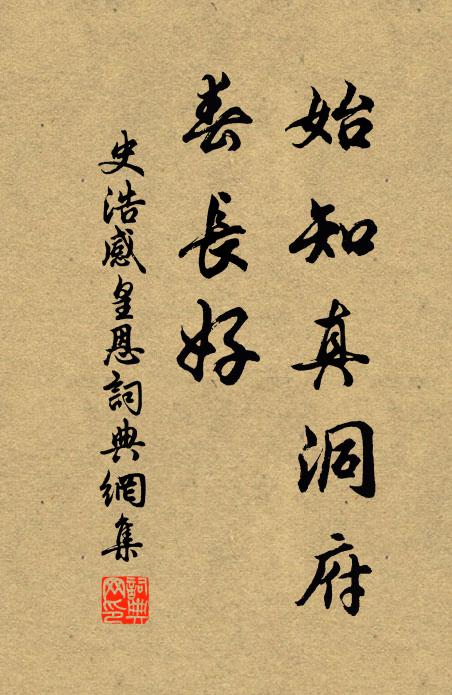 始知真洞府
春長好
史浩感皇恩詞典網集
詞典网印